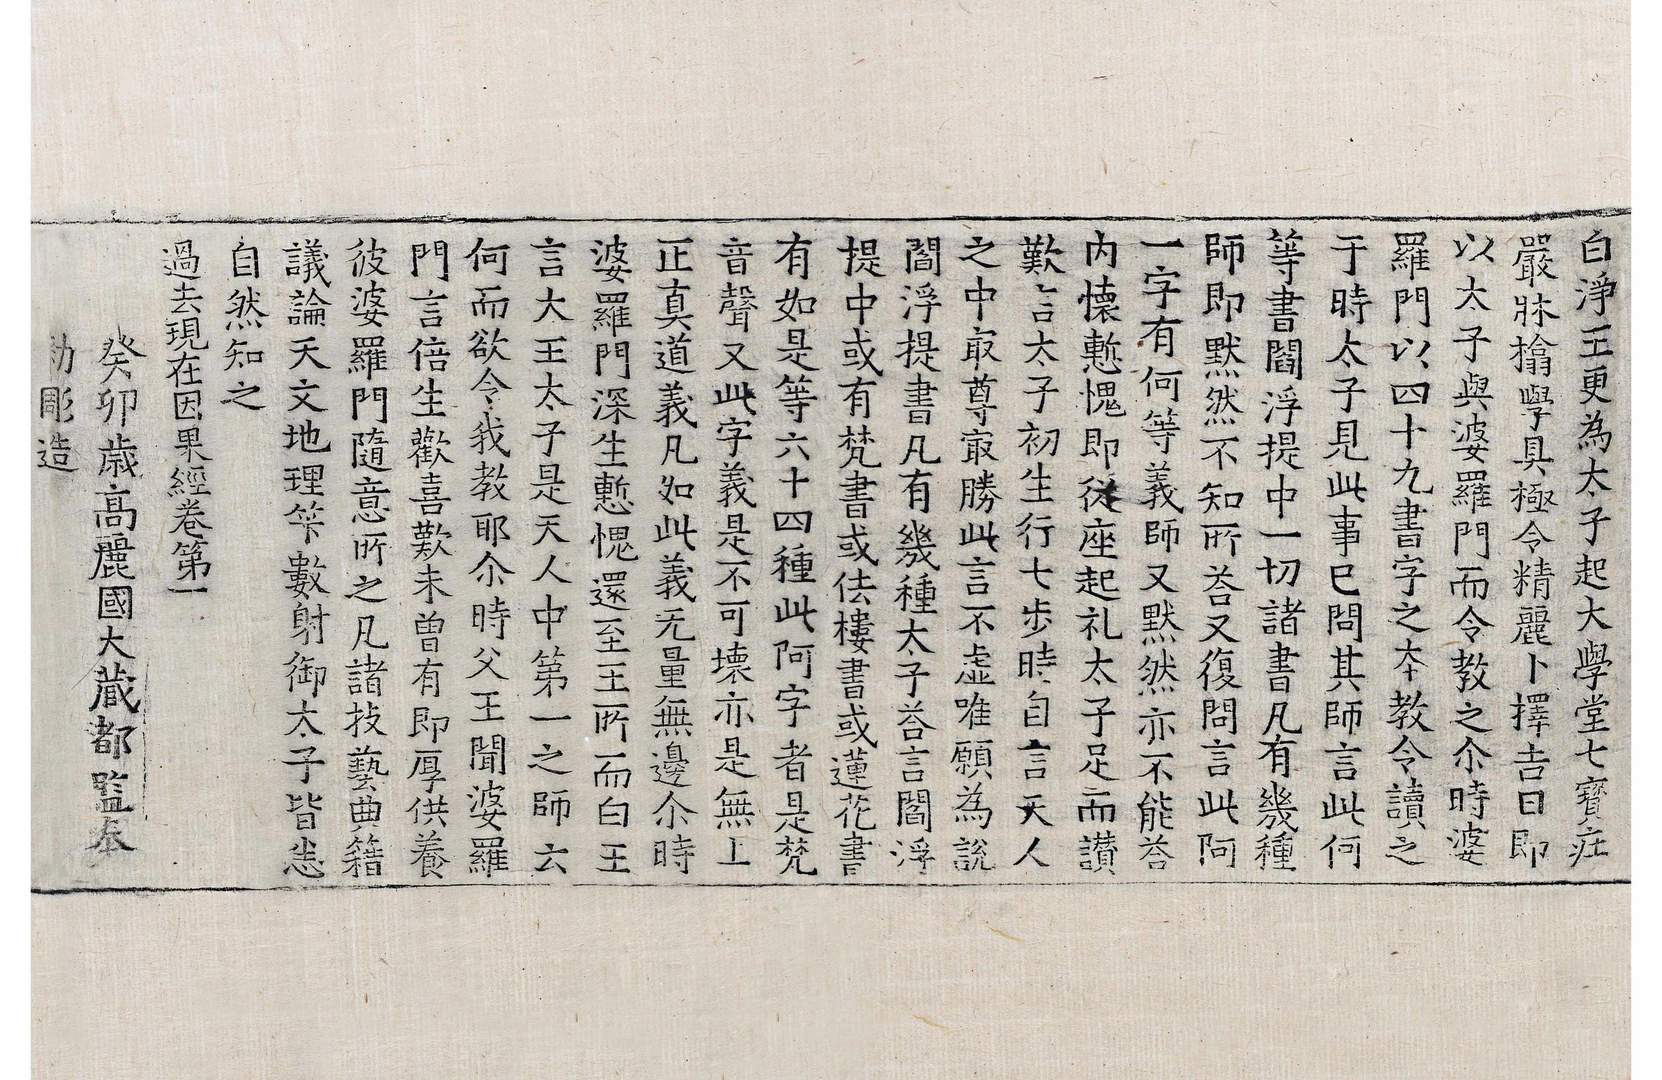 白淨王更為太子起大學堂七寶㽵
嚴牀搨學具極令精麗卜擇吉日即
以太子與婆羅門而令教之尒時婆
羅門以四十九書字之本教令讀之
于時太子見此事已問其師言此何
等書閻浮提中一切諸書凡有幾種
師即默然不知所荅又復問言此阿
一字有何等義師又默然亦不能荅
内懷慙愧即從座起礼太子足而讃
歎言太子初生行七步時自言天人
之中㝡尊㝡勝此言不虛唯願為說
閻浮提書凡有幾種太子荅言閻浮
提中或有梵書或佉樓書或蓮花書
有如是等六十四種此阿字者是梵
音聲又此字義是不可壞亦是無上
正真道義凡如此義无量無邊尒時
婆羅門深生慙愧還至王所而白王
言大王太子是天人中第一之師云
何而欲令我教耶尒時父王聞婆羅
門言倍生歡喜歎未曾有即厚供養
彼婆羅門隨意所之凡諸技藝典籍
議論天文地理筭數射御太子皆悉
自然知之
過去現在因果經卷第一
癸卯歳高麗國大蔵都監奉
勑彫造